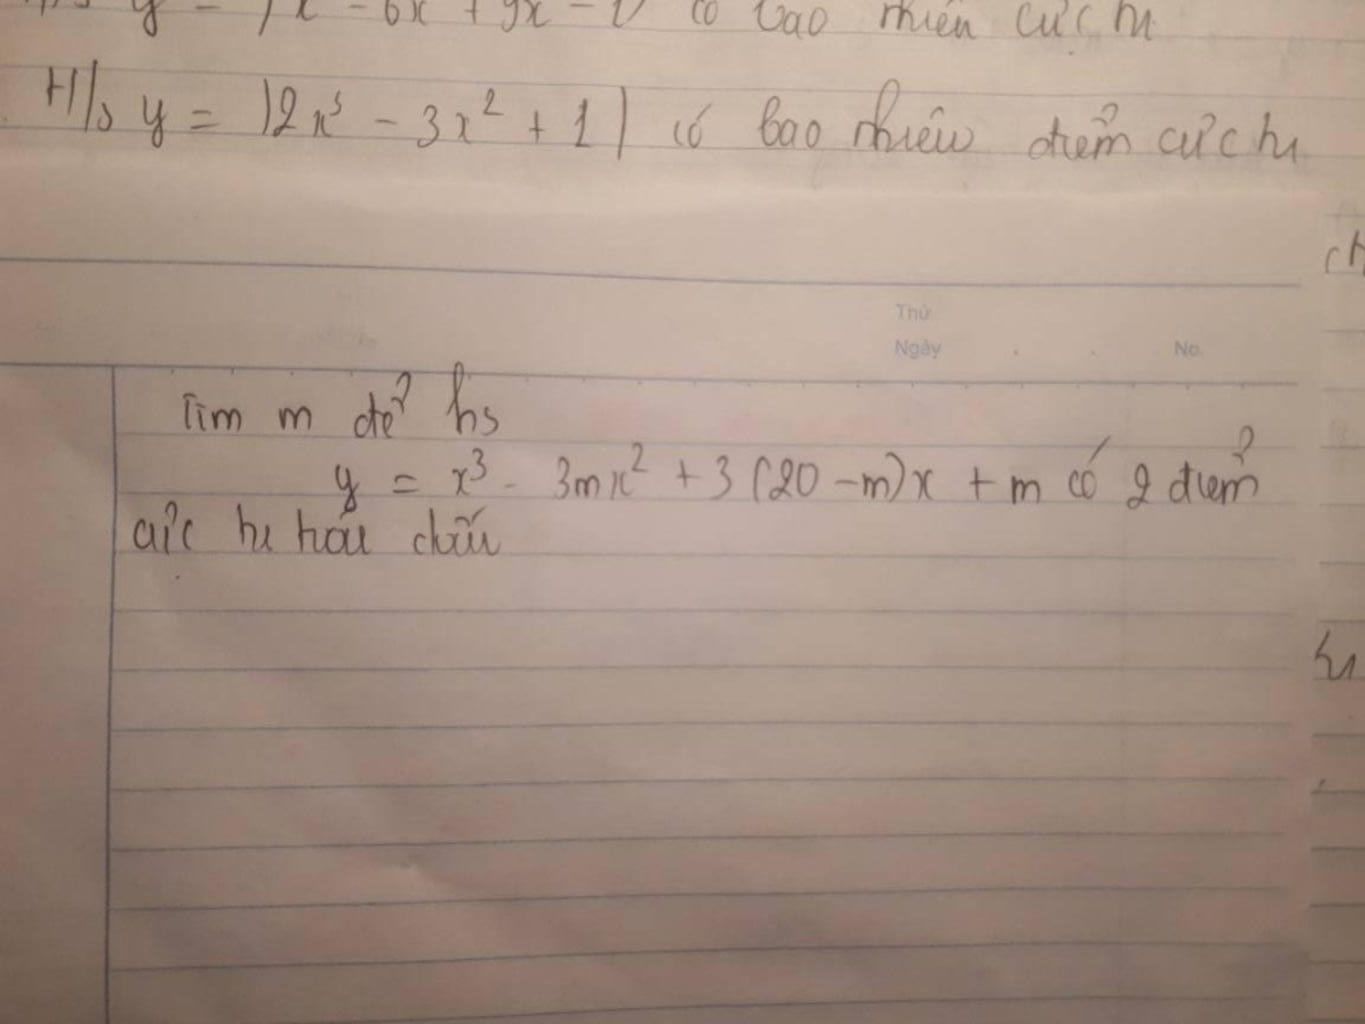 y = |x - 6x + 9x - 1| có bao nhiêu cực trị
H/s y = |2x³ - 3x² + 1| có bao nhiêu điểm cực trị
Thứ
Ngày . . No.
Tìm m để hs
y = x³ - 3mx² + 3(20-m)x + m có 2 điểm
cực trị trái dấu